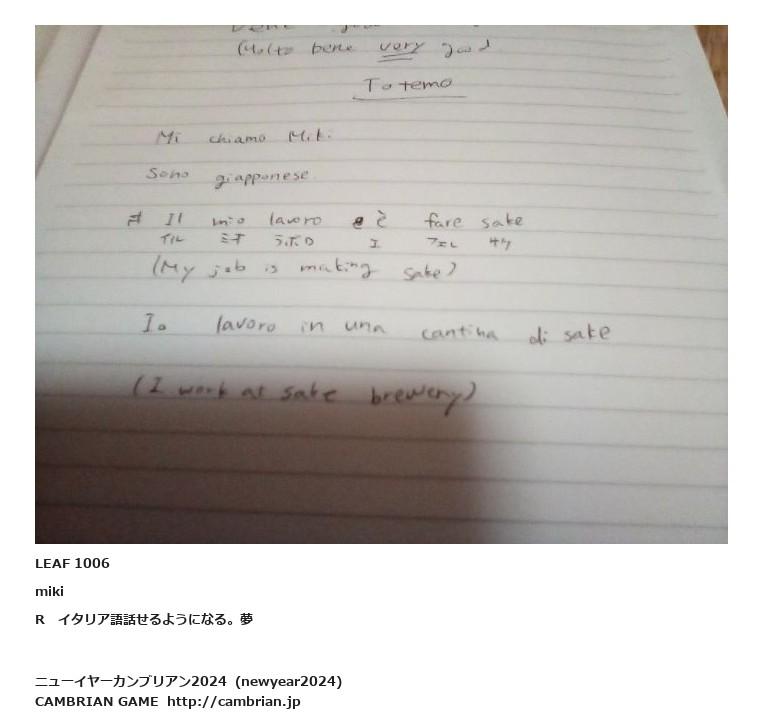 bene good
Molto bene very good
Totemo
Mi chiamo Miki.
Sono giapponese.
Il mio lavoro è fare sake
イル ミオ ラボロ エ
(My job is making sake)
Io lavoro in una cantina di sake
(I work at sake brewery)
LEAF 1006
miki
R イタリア語話せるようになる。夢
ニューイヤーカンブリアン2024 (newyear2024)
CAMBRIAN GAME http://cambrian.jp